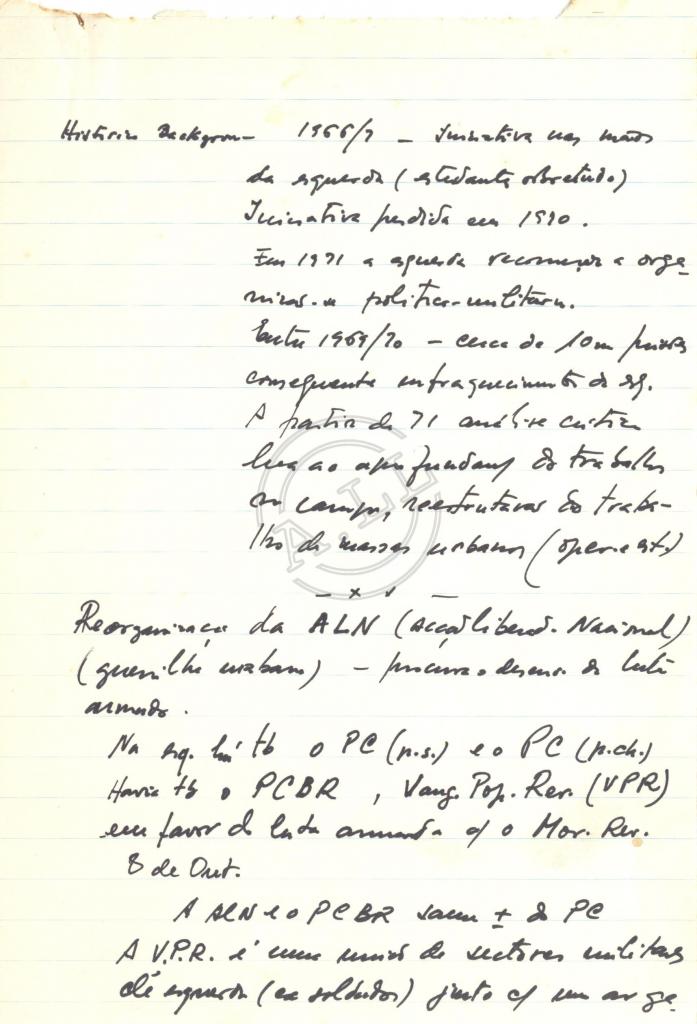 Histórico Backgroun— 1966/7 — Iniciativa nas mãos
da esquerda (estudante sobretudo)
Iniciativa perdida em 1970.
Em 1971 a esquerda recomeça a orga-
nizar-se político-militar.
Entre 1969/70 — cerca de 10m
consequente enfraquecimento da esq.
A partir de 71 análise
leva ao do trabalho
no campo, reestruturar do traba-
lho de massas urbanas (oper. e est.)
— x x —
Reorganização da ALN (Acção Liberad. Nacional)
(guerrilha urbana) — procura o desenv. da luta
armada.
Na esq. há tb o PC (p.s.) e o PC (p.ch.)
Havia tb o PCBR, Vang. Pop. Rev. (VPR)
em favor da luta armada c/ o Mov. Rev.
8 de Out.
A ALN e o PCBR saem ± do PC
A V.P.R. é uma união de sectores militares
de esquerda (ex soldados) junto c/ um orga-
A.LL